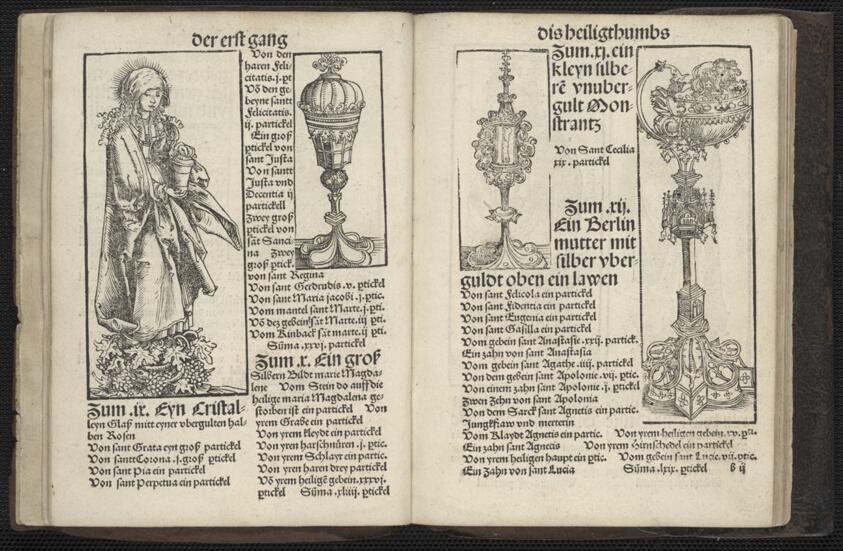 der erst gang
Zum .ix. Eyn Cristal-
leyn Glaß mitt eyner vbergulten hal-
ben Rosen
Von sant Grata eyn groß partickel
Von santt Corona .j. groß ptickel
Von sant Pia ein partickel
Von sant Perpetua ein partickel
Von den
haren Feli-
citatis .j. pt
Võ den ge-
beyne santt
Felicitatis.
ij. partickel
Ein groß
pticket von
sant Justa
Von santt
Justa vnd
Decentia ij
partickell
Zwey groß
pticket von
sãt Sanci
na Zwey
groß ptick.
von sant Regina
Von sant Gerdrudis .v. ptickel
Von sant Maria jacobi .j. ptic.
Vom mantel sant Marte .j. pti.
Võ dez gebein sãt Marte .iij pti.
Vom Kinback sãt marte .ij pti.
Sũma .xxvj. partickel
Zum .x. Ein groß
Silbern Bildt marie Magda-
lene Vom Stein do auff die
heilige maria Magdalena ge-
storben ist ein partickel Von
yrem Grabe ein partickel
Von yrem kleydt ein partickel
Von yren harschnüren .j. ptic.
Von yrem Schlayr ein partic.
Von yren haren drey partickel
Võ yrem heiligẽ gebein .xxxvj.
ptickel Sũma .xliij. ptickel
dis heiligthumbs
Zum .xj. ein
kleyn silbe
rẽ vnuber-
gult Mon-
strantz
Von Sant Cecilia
xix. partickel
Zum .xij.
Ein Berlin
mutter mit
silber vber-
guldt oben ein lawen
Von sant Felicola ein partickel
Von sant Fidentia ein partickel
Von sant Eugenia ein partickel
Von sant Gasilla ein partickel
Vom gebein sant Anastasie .xxij. partick.
Ein zahn von sant Anastasia
Vom gebein sant Agathe .iiij. partickel
Von dem gebein sant Apolonie .vij. ptic.
Von einem zahn sant Apolonie .j. ptickel
Zwen Zehn von sant Apolonia
Von dem Sarck sant Agnetis ein partic.
Jungkfraw vnd merterin
Vom Klaydt Agnetis ein partic.
Ein zahn sant Agnetis
Von yrem heiligen haupt ein ptic.
Ein Zahn von sant Lucia
Von yrem heiligen gebein .xv. pti.
Von yrem Hirnschedel ein partickel
Vom gebein sant Lucie .vij. ptic.
Sũma .lxix. ptickel b ij